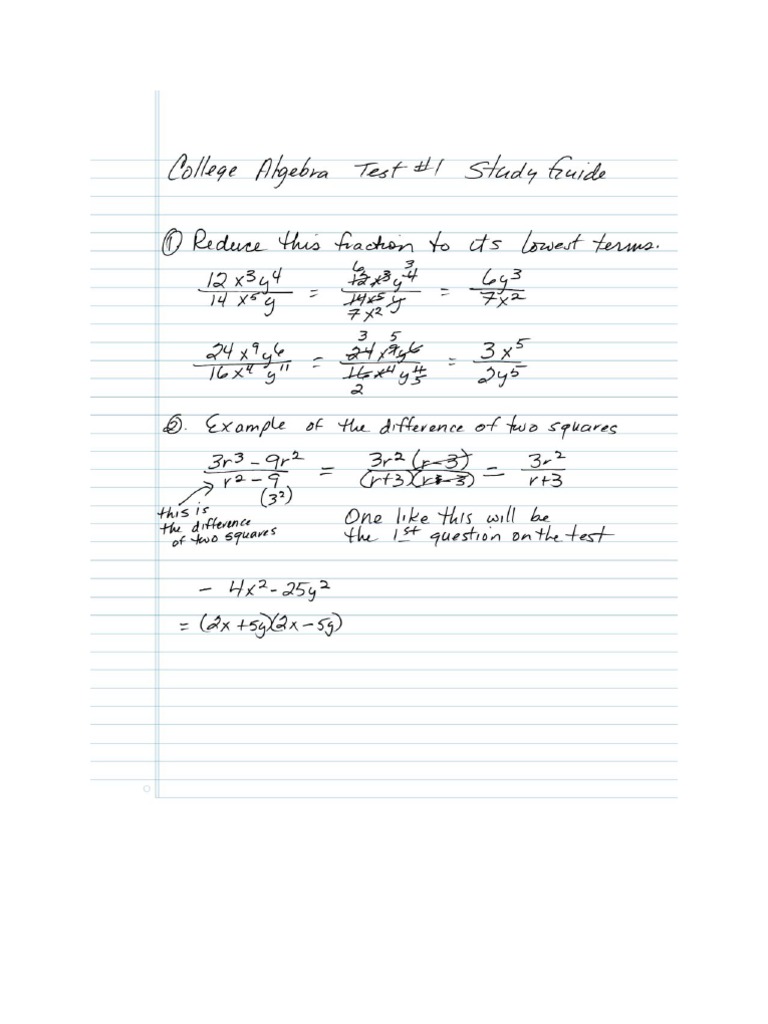 College Algebra Test #1 Study Guide
① Reduce this fraction to its lowest terms.
12x³y⁴/14x⁵y = 6 12x³y⁴ 3/14x⁵y 7x² = 6y³/7x²
24x⁹y⁶/16x⁴y¹¹ = 3 5 24x⁹y⁶/16x⁴y¹¹ 2 5 = 3x⁵/2y⁵
②. Example of the difference of two squares
3r³ - 9r²/r² - 9 = 3r²(r-3)/(r+3)(r-3) = 3r²/r+3
(3²)
this is
the difference
of two squares
One like this will be
the 1st question on the test
- 4x² - 25y²
= (2x + 5y)(2x - 5y)